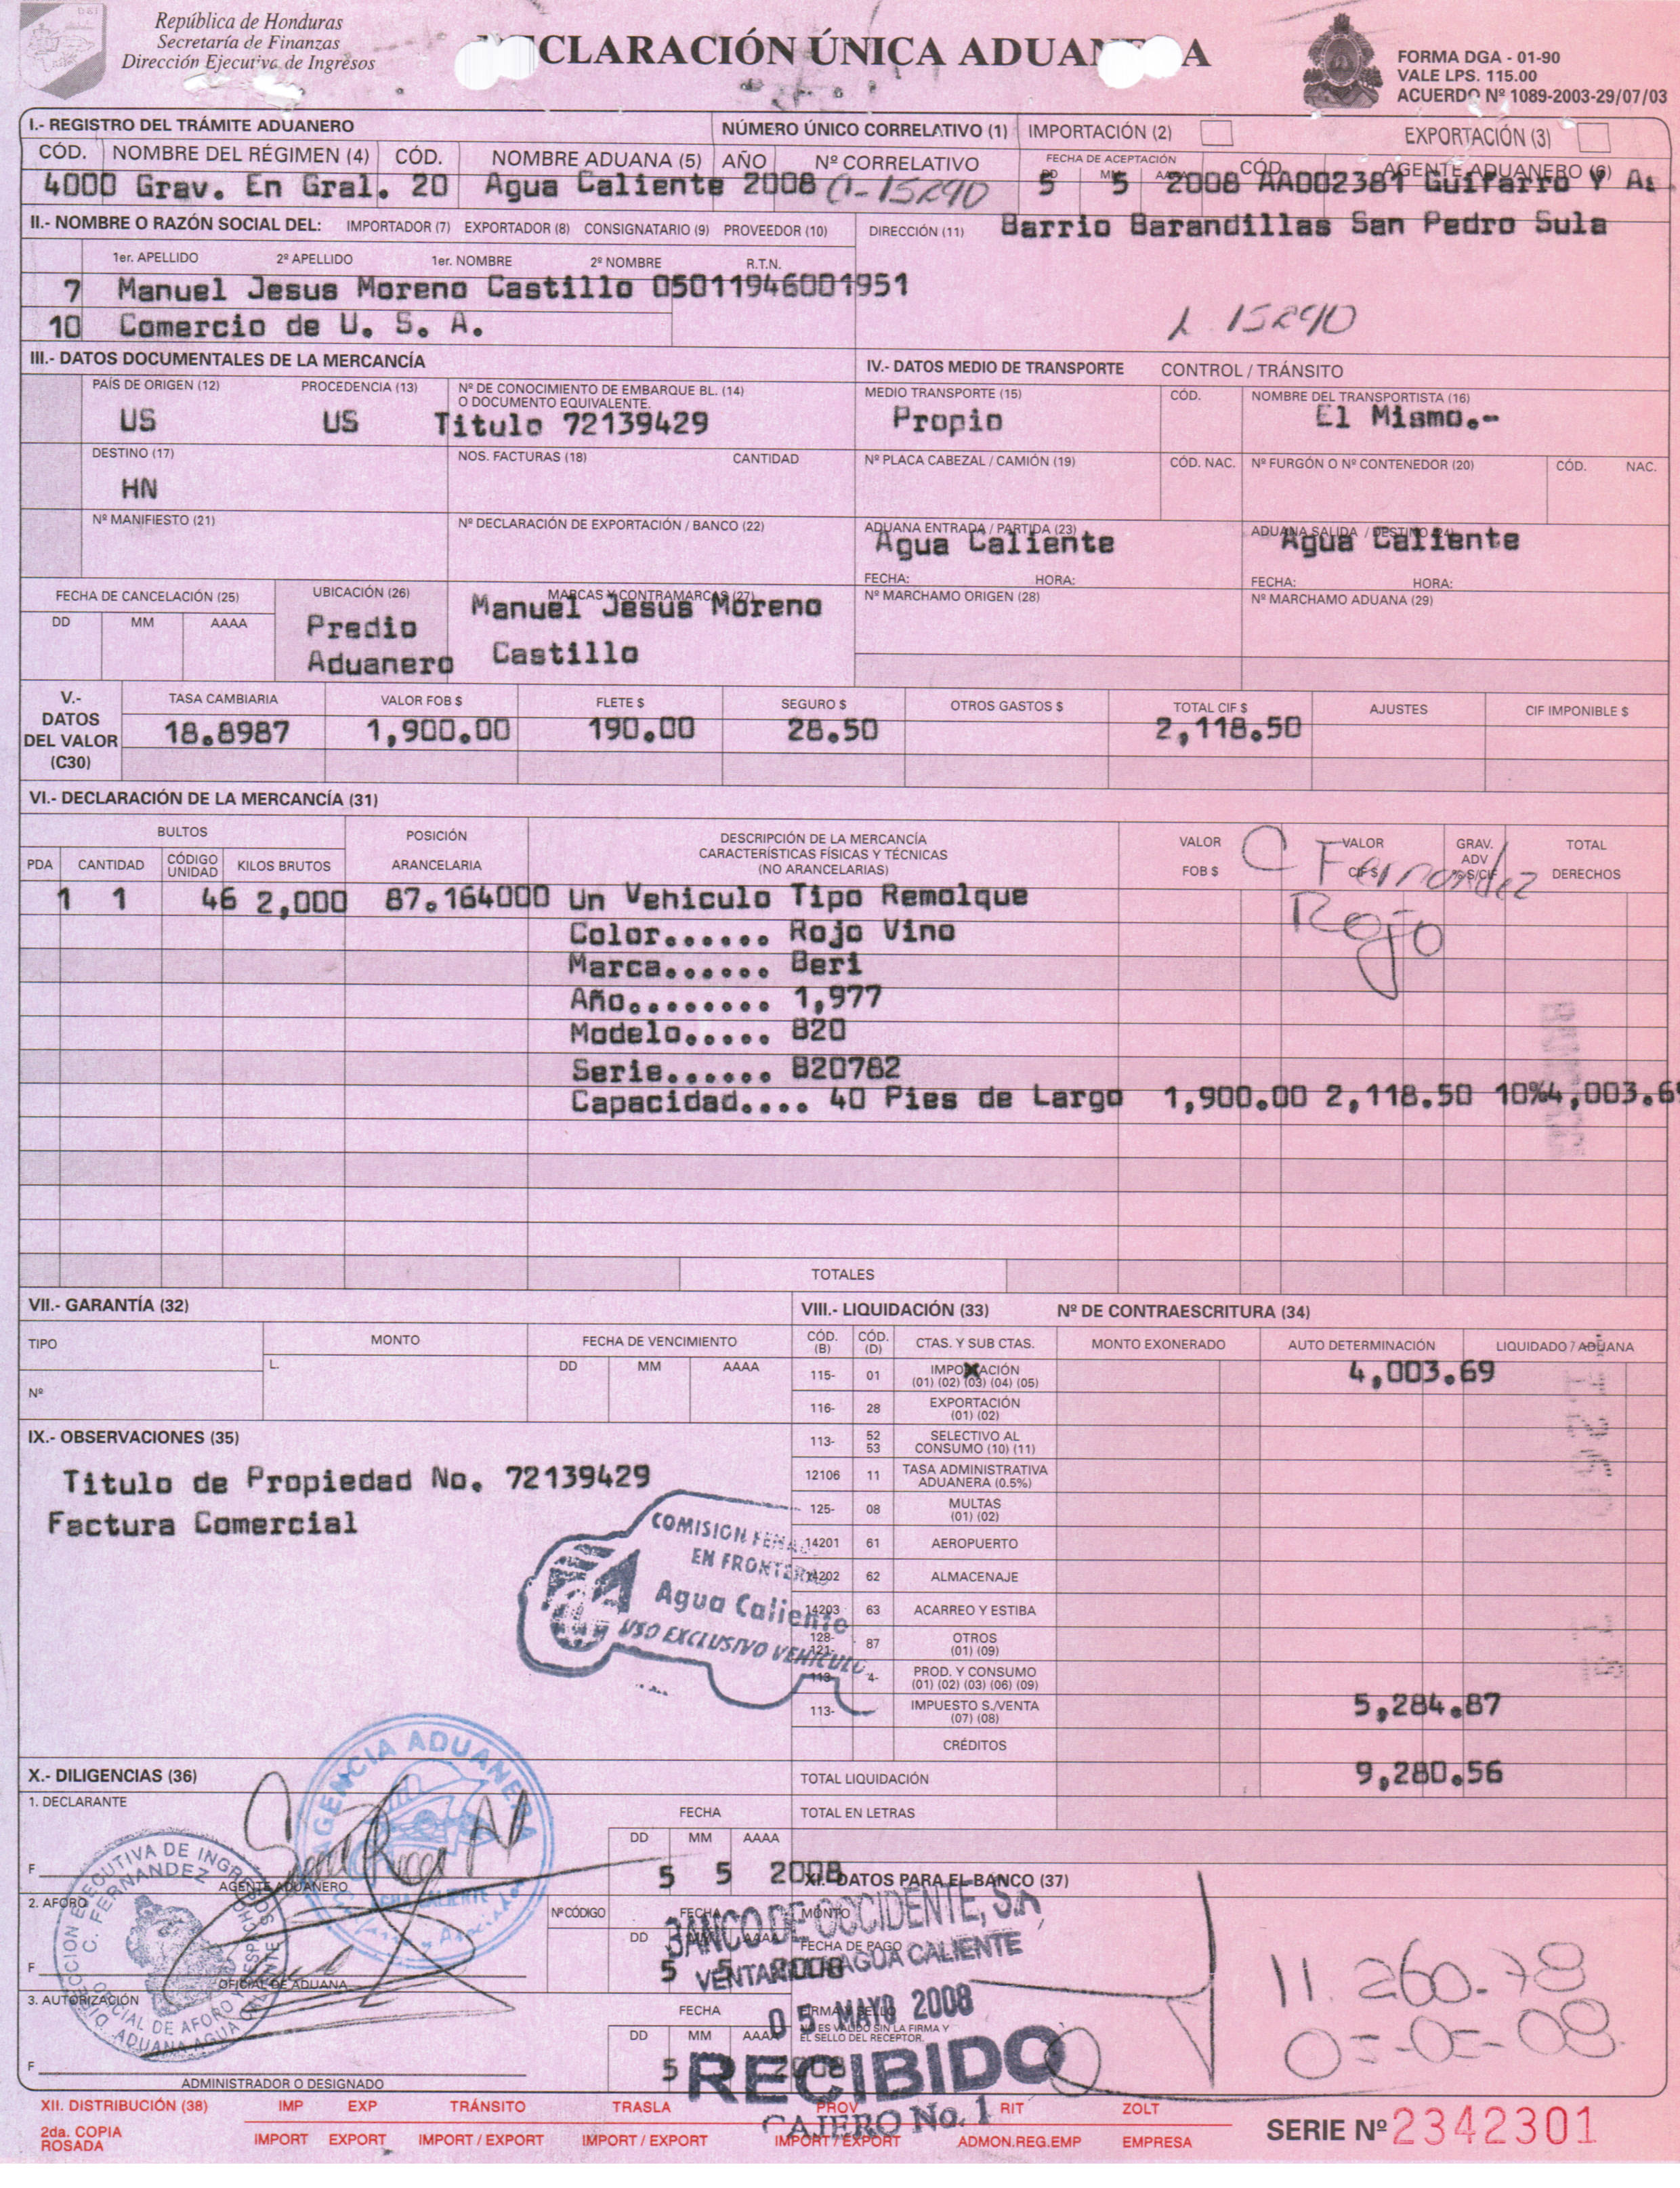 República de Honduras
Secretaría de Finanzas
Dirección Ejecutiva de Ingresos
CLARACIÓN ÚNICA ADUAN A
FORMA DGA - 01-90
VALE LPS. 115.00
ACUERDO Nº 1089-2003-29/07/03
I.- REGISTRO DEL TRÁMITE ADUANERO NÚMERO ÚNICO CORRELATIVO (1) IMPORTACIÓN (2) EXPORTACIÓN (3)
CÓD. NOMBRE DEL RÉGIMEN (4) CÓD. NOMBRE ADUANA (5) AÑO Nº CORRELATIVO FECHA DE ACEPTACIÓN CÓD. AGENTE ADUANERO (6)
DD MM AAAA
4000 Grav. En Gral. 20 Agua Caliente 2008 A-15290 5 5 2008 AA002381 Guifarro Y As
II.- NOMBRE O RAZÓN SOCIAL DEL: IMPORTADOR (7) EXPORTADOR (8) CONSIGNATARIO (9) PROVEEDOR (10) DIRECCIÓN (11) Barrio Barandillas San Pedro Sula
1er. APELLIDO 2º APELLIDO 1er. NOMBRE 2º NOMBRE R.T.N.
7 Manuel Jesus Moreno Castillo 05011946001951
10 Comercio de U. S. A.
L 15290
III.- DATOS DOCUMENTALES DE LA MERCANCÍA IV.- DATOS MEDIO DE TRANSPORTE CONTROL / TRÁNSITO
PAÍS DE ORIGEN (12) PROCEDENCIA (13) Nº DE CONOCIMIENTO DE EMBARQUE BL. (14) O DOCUMENTO EQUIVALENTE. MEDIO TRANSPORTE (15) CÓD. NOMBRE DEL TRANSPORTISTA (16)
US US Titulo 72139429 Propio El Mismo.-
DESTINO (17) NOS. FACTURAS (18) CANTIDAD Nº PLACA CABEZAL / CAMIÓN (19) CÓD. NAC. Nº FURGÓN O Nº CONTENEDOR (20) CÓD. NAC.
HN
Nº MANIFIESTO (21) Nº DECLARACIÓN DE EXPORTACIÓN / BANCO (22) ADUANA ENTRADA / PARTIDA (23) ADUANA SALIDA / DESTINO (24)
Agua Caliente Agua Caliente
FECHA: HORA: FECHA: HORA:
FECHA DE CANCELACIÓN (25) UBICACIÓN (26) MARCAS Y CONTRAMARCAS (27) Nº MARCHAMO ORIGEN (28) Nº MARCHAMO ADUANA (29)
DD MM AAAA Predio Manuel Jesus Moreno
Aduanero Castillo
V.- DATOS DEL VALOR (C30) TASA CAMBIARIA VALOR FOB $ FLETE $ SEGURO $ OTROS GASTOS $ TOTAL CIF $ AJUSTES CIF IMPONIBLE $
18.8987 1,900.00 190.00 28.50 2,118.50
VI.- DECLARACIÓN DE LA MERCANCÍA (31)
BULTOS POSICIÓN ARANCELARIA DESCRIPCIÓN DE LA MERCANCÍA CARACTERÍSTICAS FÍSICAS Y TÉCNICAS (NO ARANCELARIAS) VALOR FOB $ VALOR CIF $ GRAV. ADV % S/CIF TOTAL DERECHOS
PDA CANTIDAD CÓDIGO UNIDAD KILOS BRUTOS
C Fernandez
Rojo
1 1 46 2,000 87.164000 Un Vehiculo Tipo Remolque
Color...... Rojo Vino
Marca...... Beri
Año........ 1,977
Modelo..... 820
Serie...... 820782
Capacidad.... 40 Pies de Largo 1,900.00 2,118.50 10%4,003.69
TOTALES
VII.- GARANTÍA (32) VIII.- LIQUIDACIÓN (33) Nº DE CONTRAESCRITURA (34)
TIPO MONTO FECHA DE VENCIMIENTO
L. DD MM AAAA
Nº
CÓD. (B) CÓD. (D) CTAS. Y SUB CTAS. MONTO EXONERADO AUTO DETERMINACIÓN LIQUIDADO / ADUANA
115- 01 IMPORTACIÓN (01) (02) (03) (04) (05) 4,003.69
116- 28 EXPORTACIÓN (01) (02)
113- 52 53 SELECTIVO AL CONSUMO (10) (11)
12106 11 TASA ADMINISTRATIVA ADUANERA (0.5%)
125- 08 MULTAS (01) (02)
14201 61 AEROPUERTO
14202 62 ALMACENAJE
14203 63 ACARREO Y ESTIBA
128- 121- 87 OTROS (01) (09)
113- 4- PROD. Y CONSUMO (01) (02) (03) (06) (09)
113- IMPUESTO S./VENTA (07) (08) 5,284.87
CRÉDITOS
TOTAL LIQUIDACIÓN 9,280.56
TOTAL EN LETRAS
IX.- OBSERVACIONES (35)
Titulo de Propiedad No. 72139429
Factura Comercial
COMISION
EN FRONTERA
Agua Caliente
USO EXCLUSIVO VEHICULO
X.- DILIGENCIAS (36)
1. DECLARANTE
FECHA
DD MM AAAA
5 5 2008
F AGENTE ADUANERO
AGENCIA ADUANERA
AGUA CALIENTE
DIRECCION EJECUTIVA DE INGRESOS
C. FERNANDEZ
OFICIAL DE AFORO Y DESPACHO
ADUANA AGUA CALIENTE
2. AFORO Nº CÓDIGO FECHA
DD MM AAAA
5 5 2008
F OFICIAL DE ADUANA
3. AUTORIZACIÓN FECHA
DD MM AAAA
5 2008
F ADMINISTRADOR O DESIGNADO
XI.- DATOS PARA EL BANCO (37)
MONTO
FECHA DE PAGO
FIRMA Y SELLO
NO ES VALIDO SIN LA FIRMA Y
EL SELLO DEL RECEPTOR.
BANCO DE OCCIDENTE, S.A
VENTANILLA AGUA CALIENTE
05 MAYO 2008
RECIBIDO
CAJERO No. 1
11.260.78
05-05-08
XII. DISTRIBUCIÓN (38) IMP EXP TRÁNSITO TRASLA PROV RIT ZOLT
2da. COPIA ROSADA IMPORT EXPORT IMPORT / EXPORT IMPORT / EXPORT IMPORT / EXPORT ADMON.REG.EMP EMPRESA
SERIE Nº 2342301